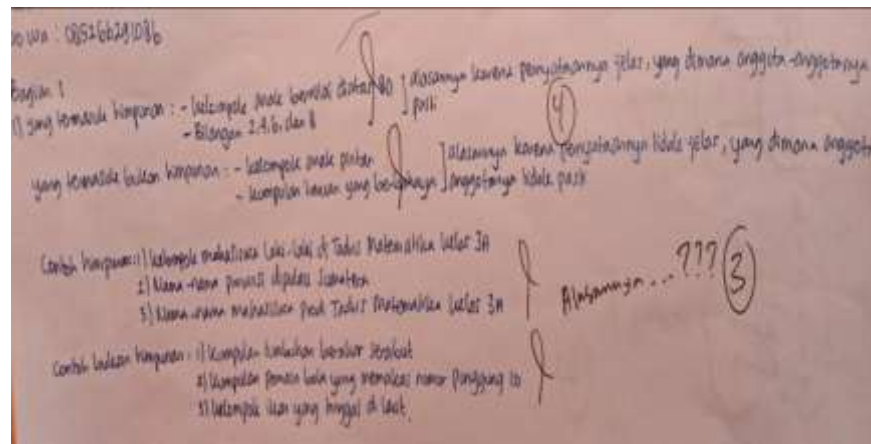 no wa : 085266291086
Bagian 1
1) yang termasuk himpunan : - kelompok anak bernilai diatas 80 ] alasannya karena pernyataannya jelas, yang dimana anggota-anggotanya
- Bilangan 2,4,6, dan 8 pasti
4
yang termasuk bukan himpunan : - kelompok anak pintar ] alasannya karena pernyataannya tidak jelas, yang dimana anggota
- kumpulan hewan yang berbahaya anggotanya tidak pasti
Contoh himpunan : 1) kelompok mahasiswa laki-laki di Tadris Matematika kelas 3A
2) Nama-nama provinsi dipulau Sumatera
3) Nama-nama mahasiswa prodi Tadris Matematika kelas 3A
Alasannya ... ??? 3
Contoh bukan himpunan : 1) kumpulan tumbuhan berakar serabut
2) kumpulan pemain bola yang memakai nomor punggung 10
3) kelompok ikan yang tinggal di laut